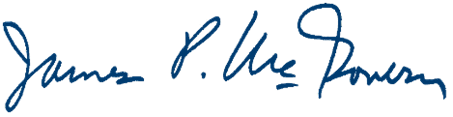 James P. McGovern